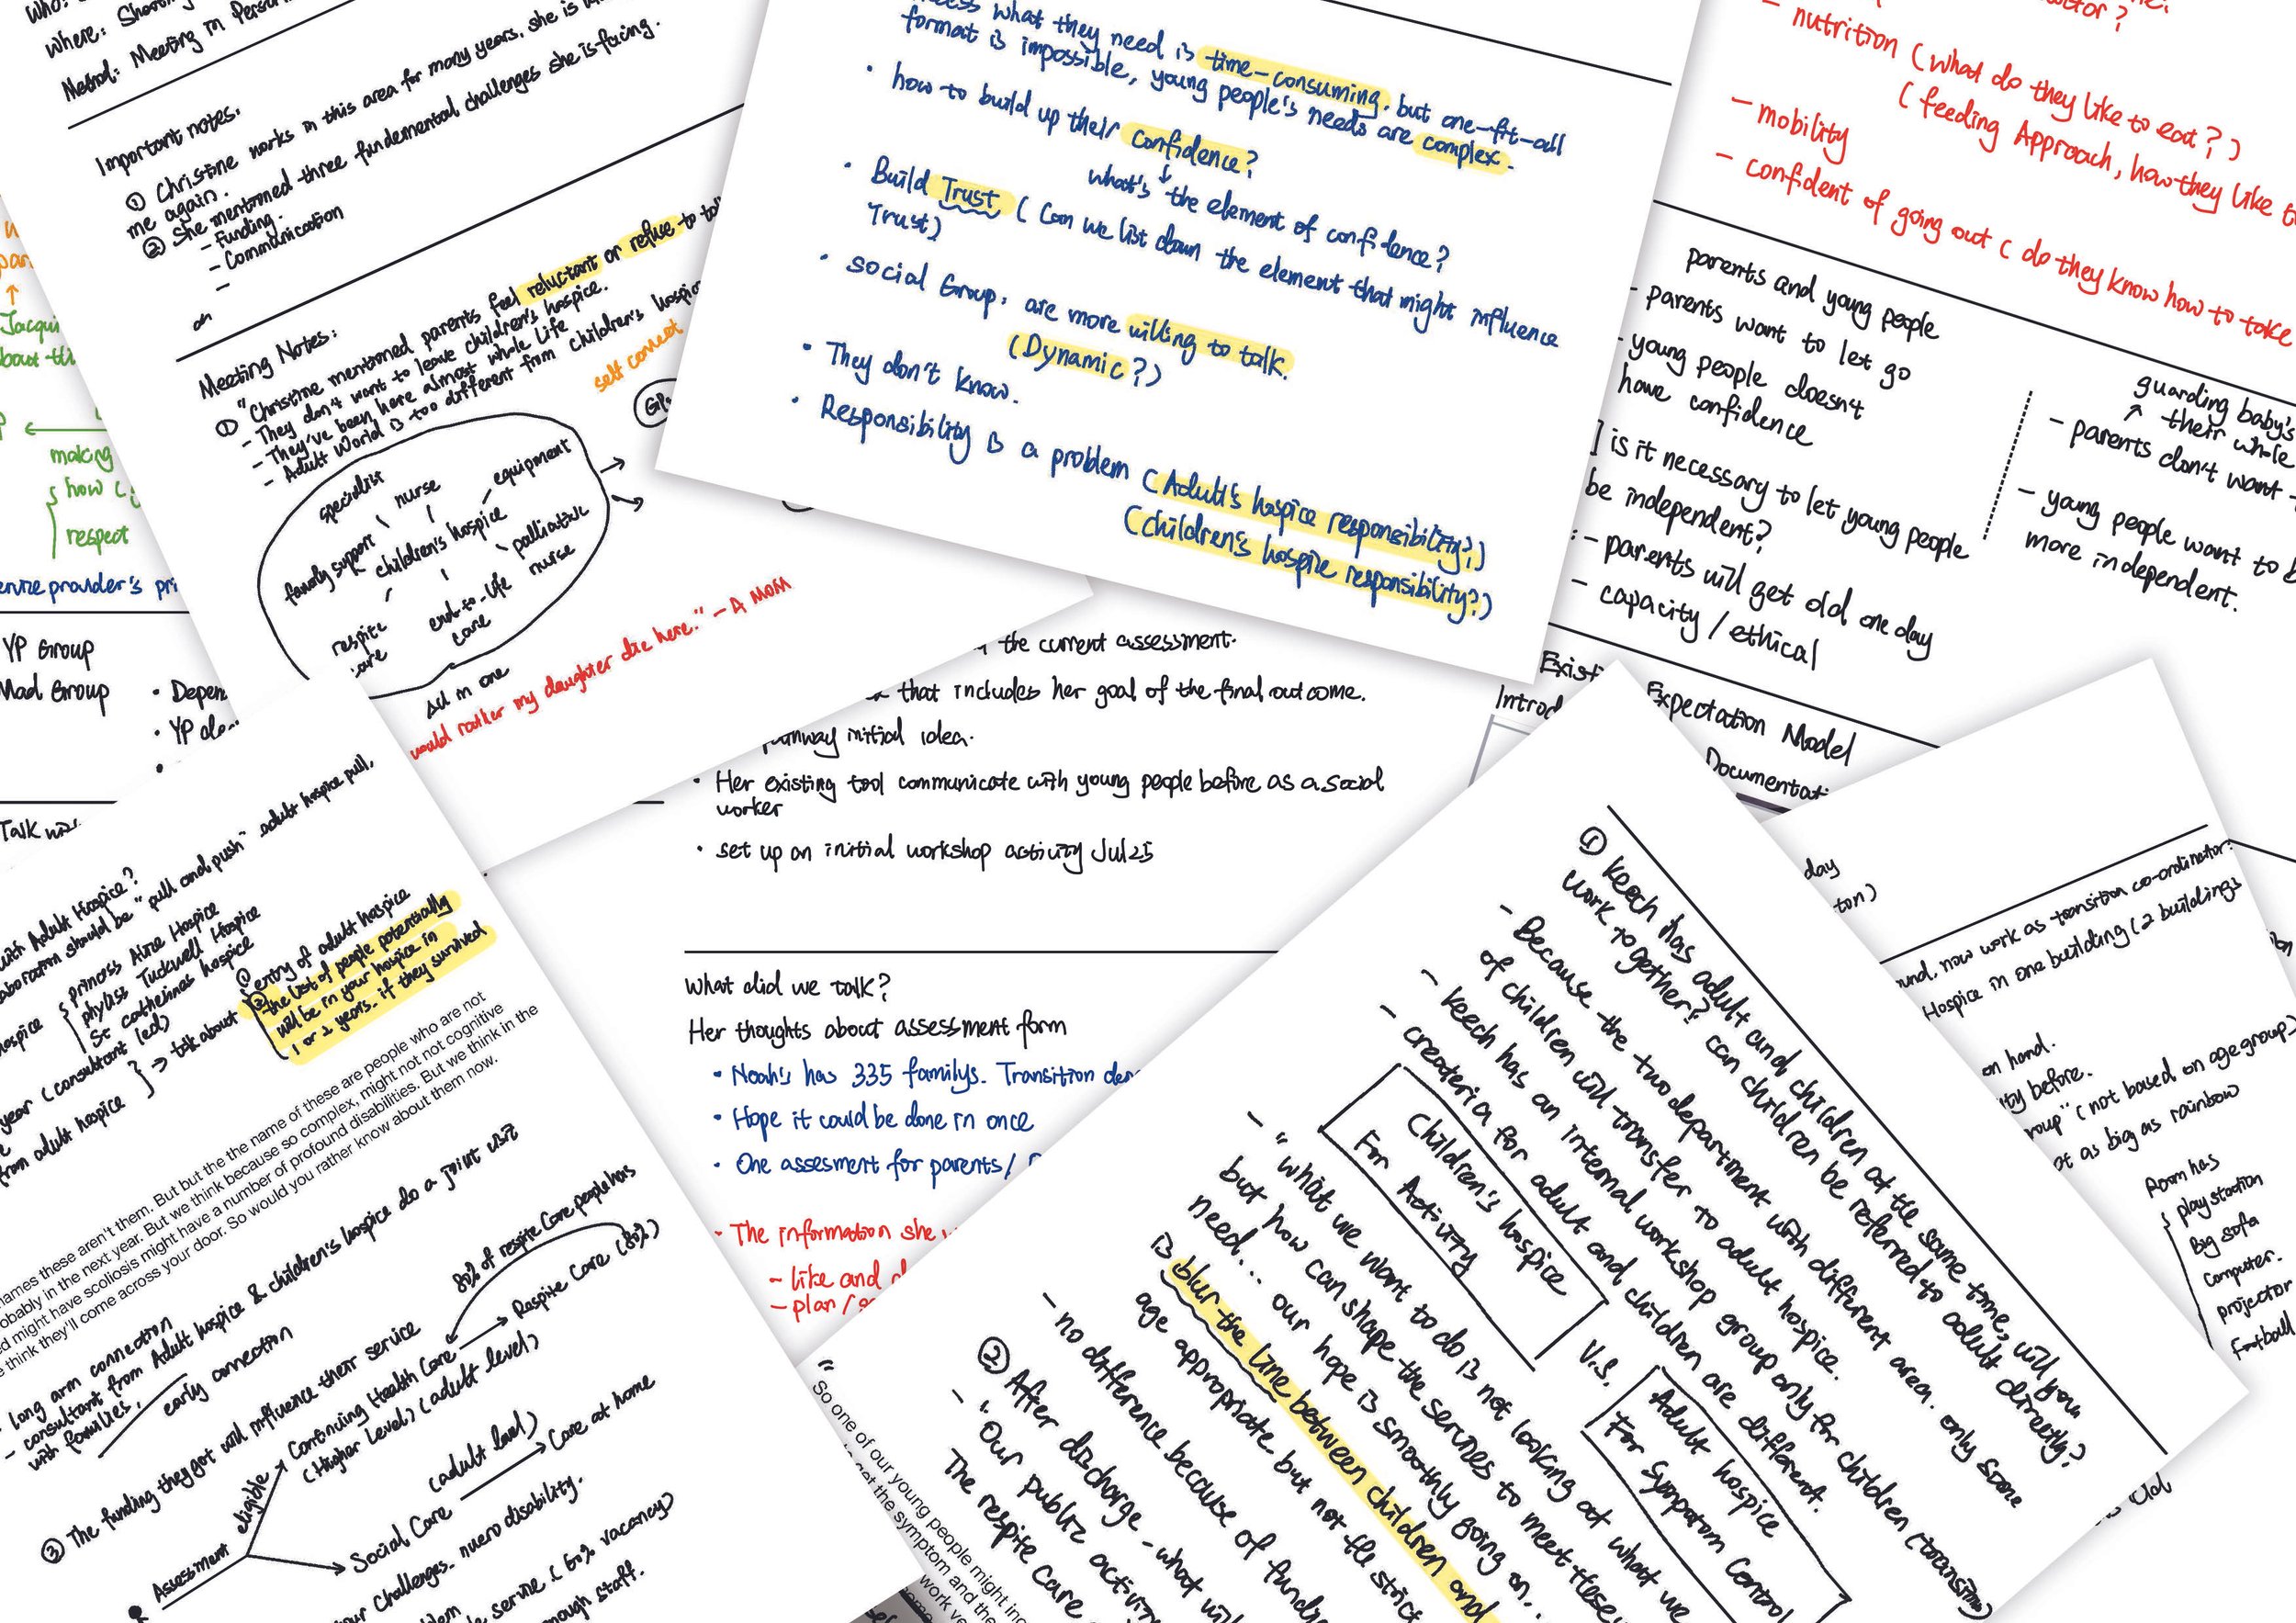 Where: Shooting
Method: Meeting in Person
Important notes.
① Christine works in this area for many years. she is
me again.
② She mentioned three fundemental challenges she is facing.
- Funding.
- Communication
-
Meeting Notes:
① "Christine mentioned parents feel reluctant or refuse to talk
- They don't want to leave children's hospice.
- They've been here almost whole life
- Adult World is too different from children's hospice
self connect
GPs
specialist
nurse
equipment
family support
children's hospice
palliative
nurse
respite
care
end-to-life
care
All in one
would rather my daughter die here." - A MOM
what they need is time-consuming. but one-fit-all
format is impossible, young people's needs are complex.
• how to build up their confidence?
↓
what's the element of confidence?
• Build Trust ( Can we list down the element that might influence
Trust)
• social Group, are more willing to talk.
(Dynamic?)
• They don't know.
• Responsibility is a problem (Adult's hospice responsibility?)
(children's hospice responsibility?)
- nutrition (what do they like to eat?)
( feeding Approach, how they like to
- mobility
- confident of going out ( do they know how to take
parents and young people
- parents want to let go
- young people doesn't
have confidence
is it necessary to let young people
be independent?
- parents will get old one day
- capacity / ethical
guarding baby's
↗ their whole
- parents don't want
- young people want to
more independent.
Expectation Model
Jacqui
about
making
how
respect
provider's
YP Group
Mad Group
• YP
Talk
the current assessment.
that includes her goal of the final outcome.
pathway initial idea.
• Her existing tool communicate with young people before as a social
worker
• set up an initial workshop activity Jul25
What did we talk?
Her thoughts about assessment form
• Noah's has 335 familys. Transition
• Hope it could be done in once
• One assesment for parents/
• The information she
- like and
- plan /
with Adult Hospice?
should be "pull and push" adult hospice pull,
hospice { princess Alice Hospice
phyliss Tuckwell Hospice
St cathelines hospice
year (consultant led)
from adult hospice } → talk about
① entry of adult hospice
② the list of people potentially
will be in your hospice in
1 or 2 years. if they survived
names these aren't them. But but the the name of these are people who are not
probably in the next year. But we think because so complex, might not not cognitive
might have scoliosis might have a number of profound disabilities. But we think in the
think they'll come across your door. So would you rather know about them now.
- long arm connection
- consultant from Adult hospice & children's hospice do a joint visit
with families.
early connection
③ The funding they got will influence their service
80% of respite Care people has
Assessment
eligible
Continuing Health Care → Respite Care (80%)
(Higher Level) (adult level)
Social Care → Care at home
(adult level)
challenges. nuero disability.
service (60% vacancy)
enough staff.
① Keech has adult and children at the same time, will you
work together? can children be referred to adult directly?
- Because the two department with different area. only some
of children will transfer to adult hospice.
- Keech has an internal workshop group only for children (transition)
- createria for adult and children are different.
Children's hospice
For Activity
V.S.
Adult hospice
For Sympatom Control
- "what we want to do is not looking at what we
but how can shape the servises to meet these
need... our hope is smoothly going on...
is blur the line between children and
age appropriate but not the strict
② After discharge - what will
- no difference because of funding
- "Our public
The respite care
"
So one of our young people might
get the symptom and the
now work as transition co-ordinator?
Hospice in one building (2 buildings
on hand.
before.
(not based on age group)
as big as rainbow
Room has
play station
Big sofa
Computer.
projector
football